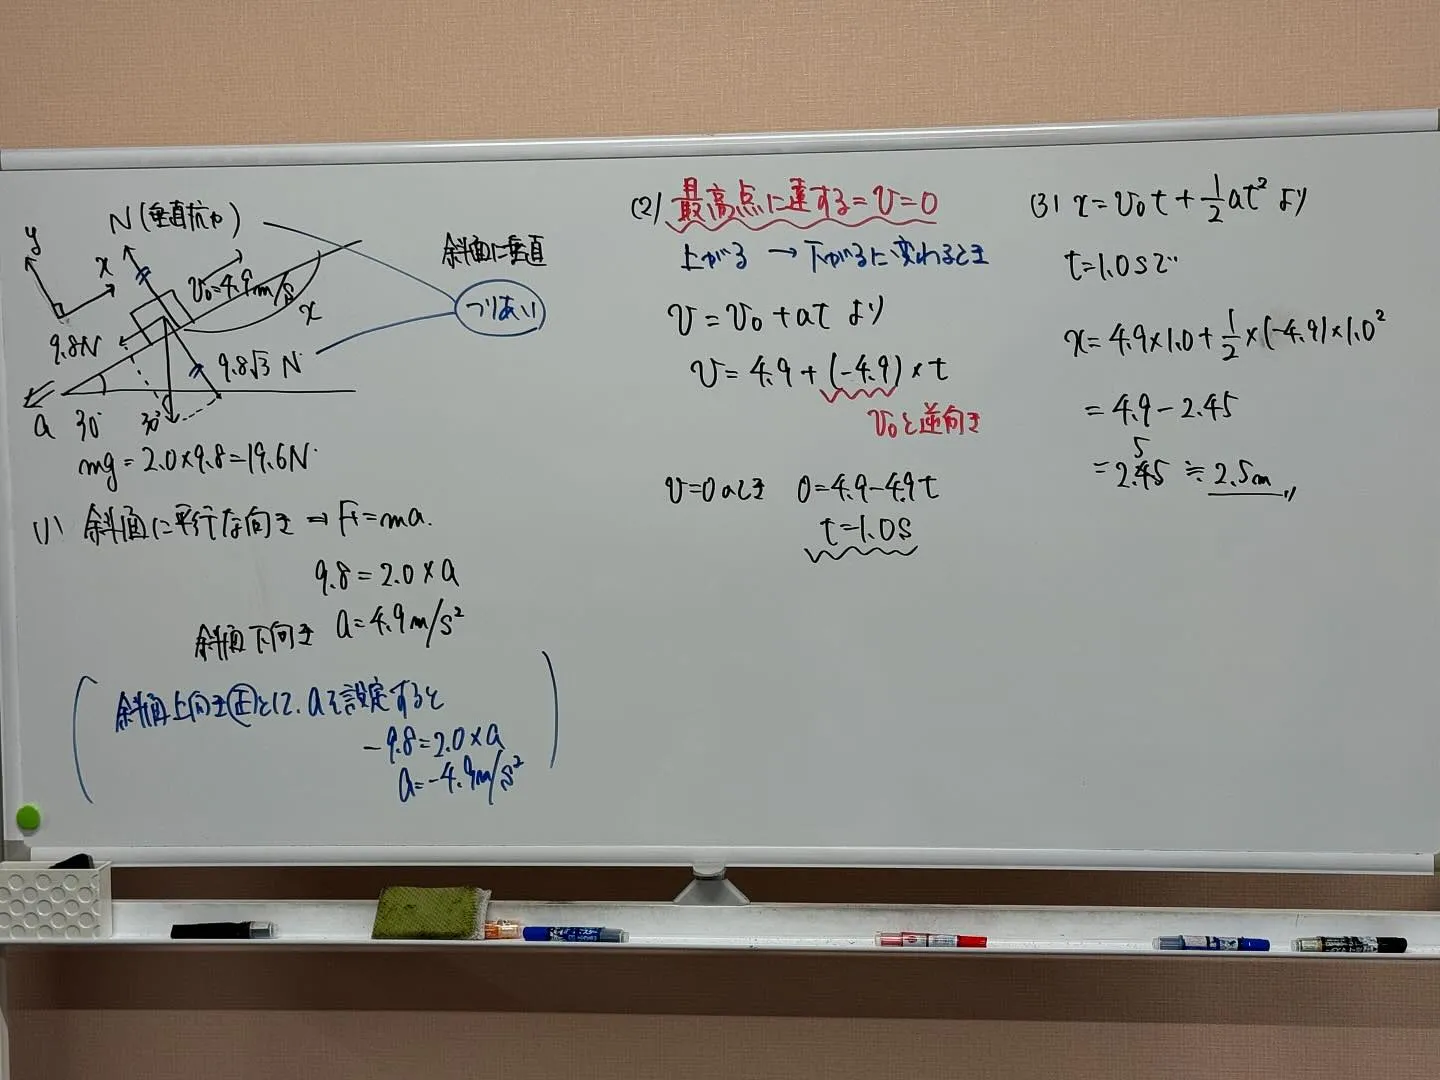 y
N(垂直抗力)
x
v₀=4.9m/s
x
9.8N
9.8√3 N
a
30°
30°
斜面に垂直
つりあい
mg=2.0×9.8=19.6N
(1) 斜面に平行な向き⇒F=ma.
9.8=2.0×a
斜面下向き a=4.9m/s²
(斜面上向き正として、aを設定すると
-9.8=2.0×a
a=-4.9m/s²)
(2) 最高点に達する=v=0
上がる→下がるに変わるとき
v=v₀+atより
v=4.9+(-4.9)×t
v₀と逆向き
v=0のとき 0=4.9-4.9t
t=1.0s
(3) x=v₀t+1/2at²より
t=1.0sで
x=4.9×1.0+1/2×(-4.9)×1.0²
=4.9-2.45
5
=2.45≒2.5m